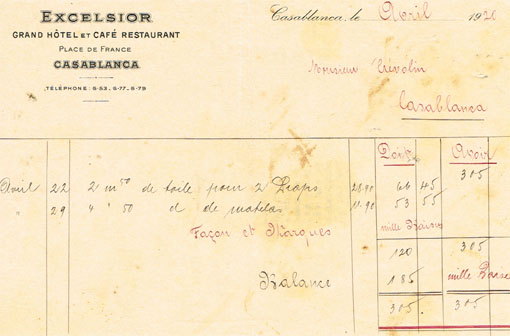 EXCELSIOR
GRAND HÔTEL ET CAFÉ RESTAURANT
PLACE DE FRANCE
CASABLANCA
TÉLÉPHONE : 6-53, 6-77, 6-79
Casablanca, le Avril 1920
Monsieur
Casablanca
Doit Avoir
305
Avril 22 2 m 50 de toile pour 2 Draps 28.90 66 45
29 4 " 50 d de matelas 11.90 53 55
Façon et Marques mille Baisers
120 305
Balance 185 mille Baise
305 305